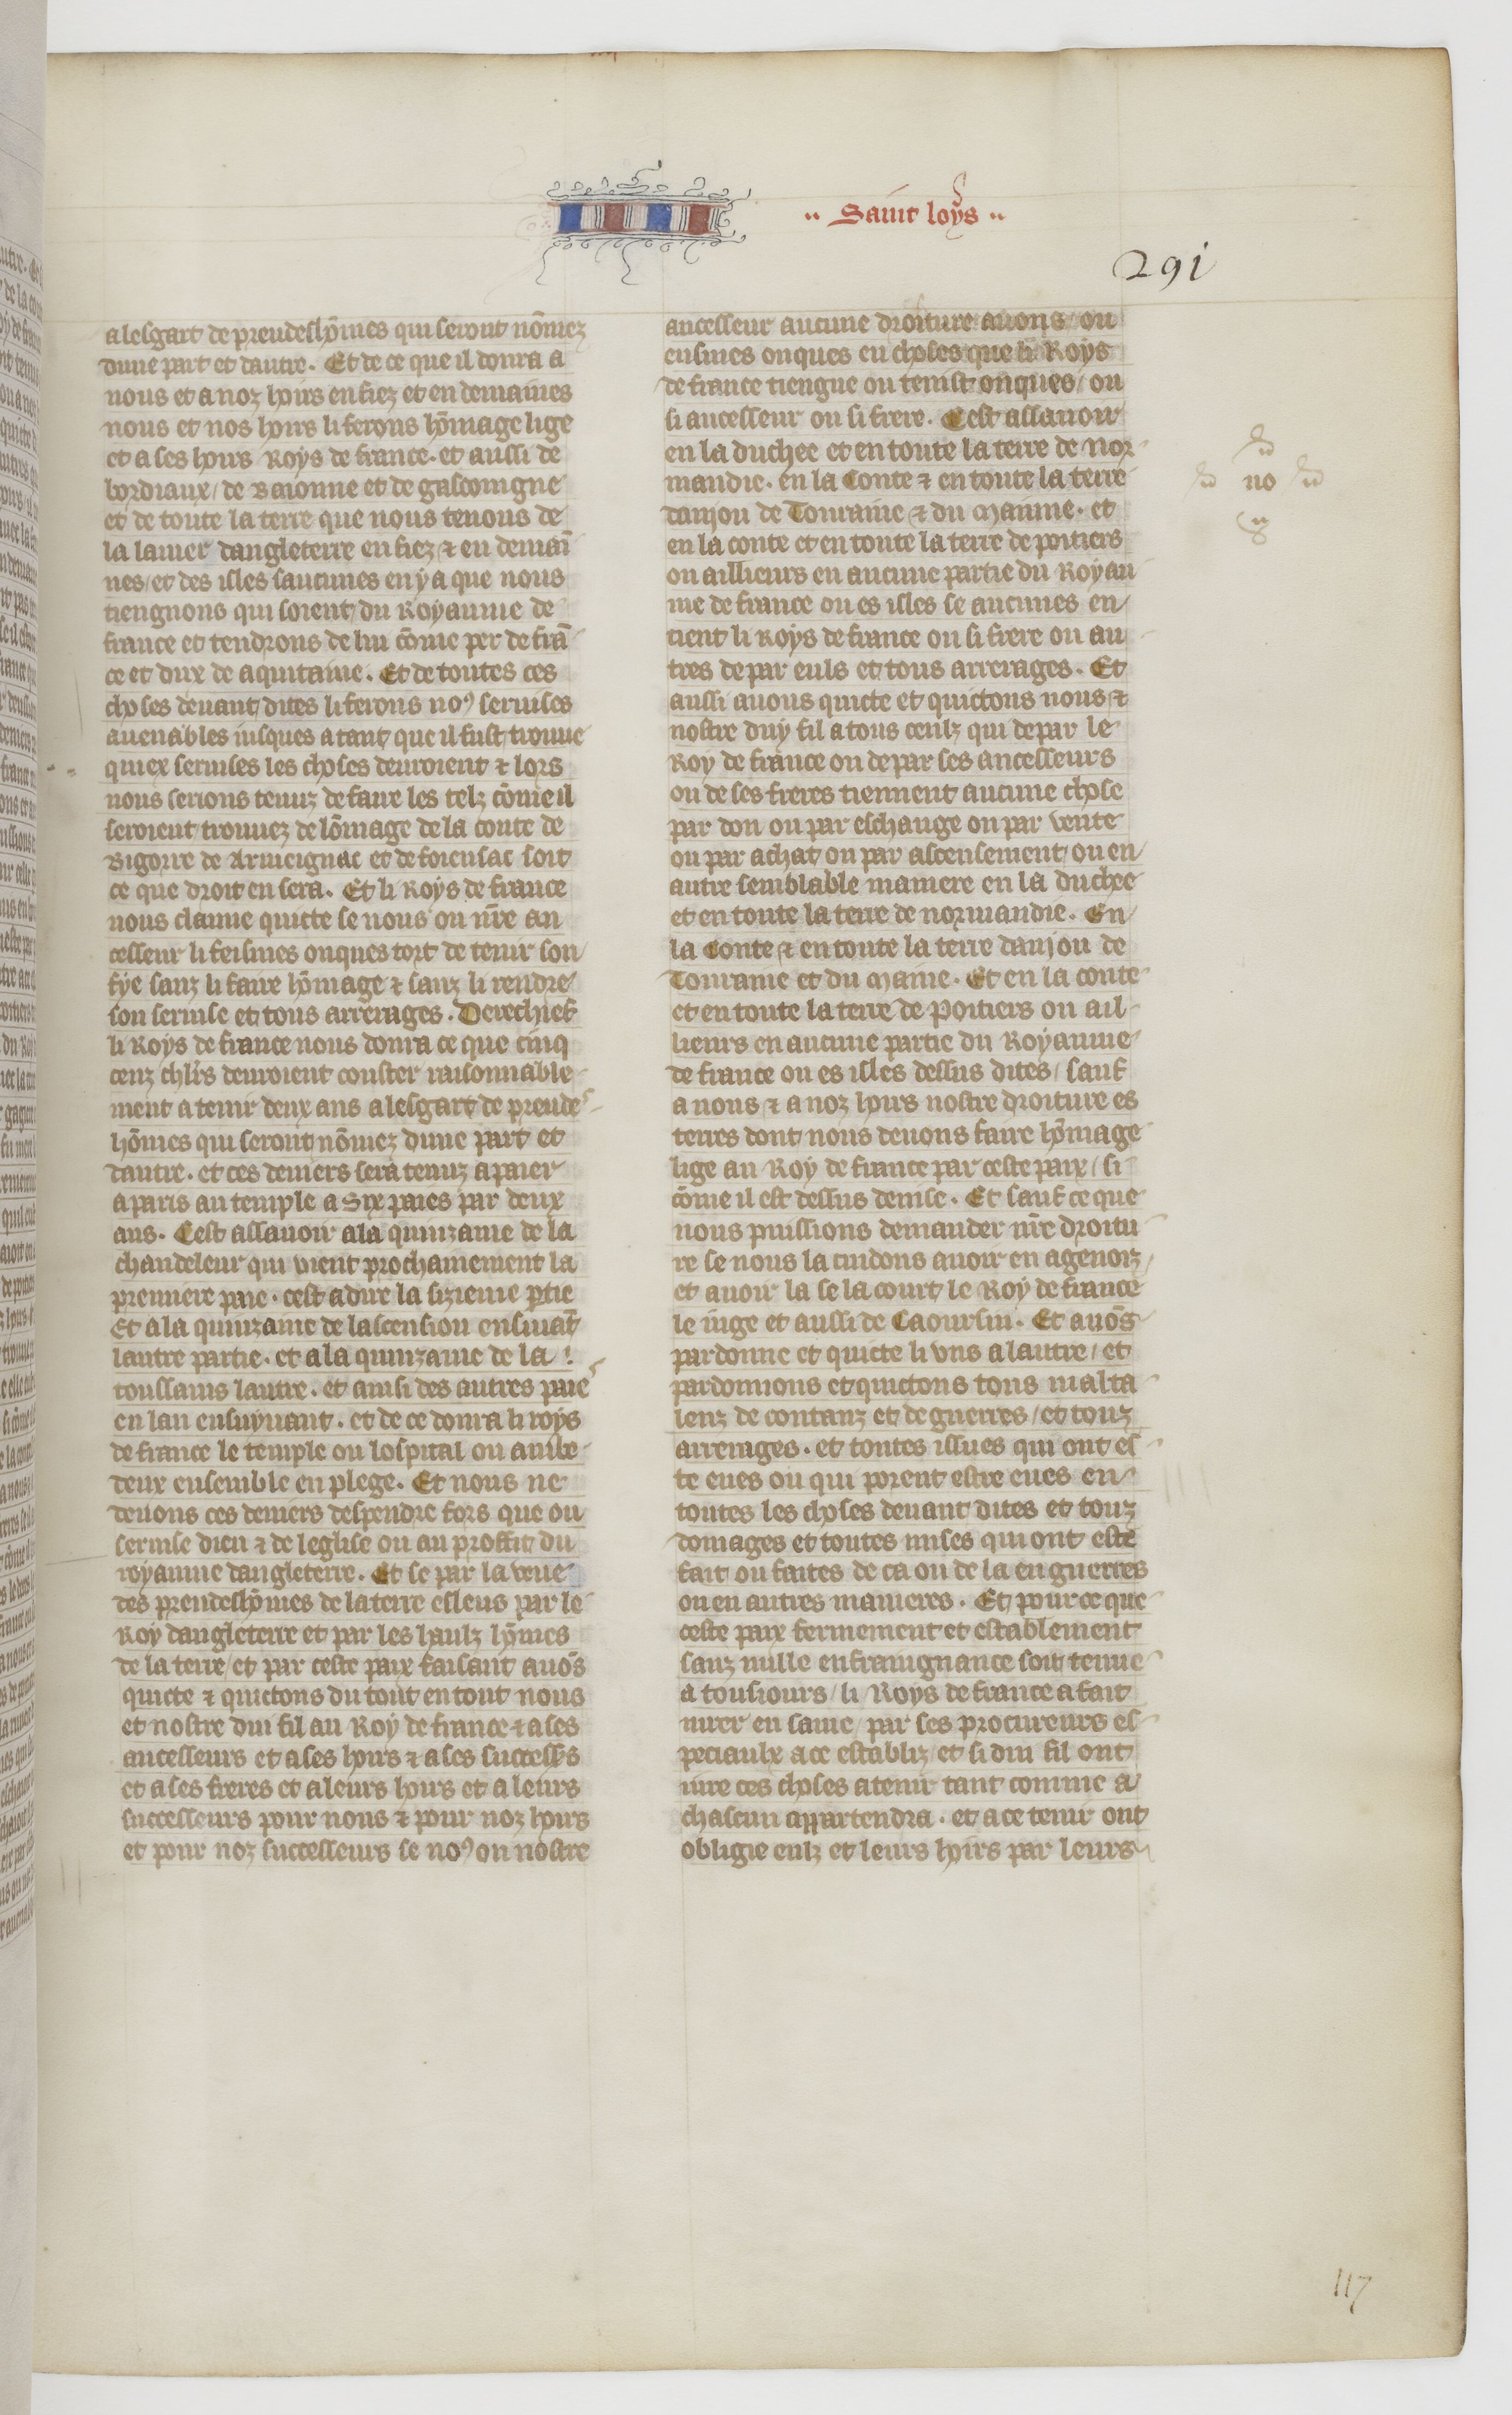 .. Saint loys ..
291
a lesgart de preudeshōmes qui seront nōmez
dune part et dautre. Et de ce que il donra a
nous et a noz hoirs en fiez et en demaines
nous et nos hoirs li ferons hōmage lige
et a ses hoirs Roys de france. et aussi de
bordiaux / de Baionne et de gascoingne
et de toute la terre que nous tenons de
la la mer dangleterre en fiez ⁊ en demai
nes / et des isles saucunes en y a que nous
tiengnons qui soient du Royaume de
france et tendrons de lui cōme per de frā
ce et dux de aquitaine. Et de toutes ces
choses deuant dites li ferons noꝰ seruises
auenables iusques a tant que il fust trouue
quiex seruises les choses deuroient ⁊ lors
nous serions tenuz de faire les telz cōme il
seroient trouuez de lōmage de la conte de
Bigorre de Armeignac et de foiensac soit
ce que droit en sera. Et li Roys de france
nous claime quicte se nous ou nr̄e an
cesseur li feismes onques tort de tenir son
fye sanz li faire hōmage ⁊ sanz li rendre
son seruise et tous arrerages. Derechief
li Roys de france nous donra ce que cinq
cenz chlr̄s deuroient couster raisonnable
ment a tenir deux ans a lesgart de preudes
hōmes qui seront nōmez dune part et
dautre. et ces deniers sera tenuz a paier
a paris au temple a Six paies par deux
ans. Cest assauoir a la quinzaine de la
chandeleur qui vient prochainement la
premiere paie. cest a dire la sizieme ꝑtie
Et a la quinzaine de lascension ensiuāt
lautre partie. et a la quinzaine de la
toussains lautre. et ainsi des autres paies
en lan ensuyuant. et de ce donra li roys
de france le temple ou lospital ou ambe
deux ensemble en plege. Et nous ne
deuons ces deniers despendre fors que ou
seruise dieu ⁊ de leglise ou au proffit du
royaume dangleterre. Et se par la veue
des preudeshōmes de la terre esleus par le
Roy dangleterre et par les haulz hōmes
de la terre / et par ceste paix faisant auōs
quicte ⁊ quictons du tout en tout nous
et nostre dui fil au Roy de france ⁊ a ses
ancesseurs et a ses hoirs ⁊ a ses successr̄s
et a ses freres et a leurs hoirs et a leurs
successeurs pour nous ⁊ pour noz hoirs
et pour noz successeurs se noꝰ ou nostre
ancesseur aucune droiture auons / ou
eusmes onques en choses que li Roys
de france tiengne ou tenist onques / ou
si ancesseur ou si frere. Cest assauoir
en la duchee et en toute la terre de nor
mandie. en la Conte ⁊ en toute la terre
danjou de Touraine ⁊ du Maine. et
en la conte et en toute la terre de poitiers
ou aillieurs en aucune partie du Royau
me de france ou es isles se aucunes en
tient li Roys de france ou si frere ou au
tres de par euls et tous arrerages. Et
aussi auons quicte et quictons nous ⁊
nostre duy fil a tous ceulz qui de par le
Roy de france ou de par ses ancesseurs
ou de ses freres tiennent aucune chose
par don ou par eschange ou par vente
ou par achat ou par ascensement / ou en
autre semblable maniere en la duchee
et en toute la terre de normandie. En
la Conte ⁊ en toute la terre danjou de
Touraine et du Maine. Et en la conte
et en toute la terre de Poitiers ou ail
lieurs en aucune partie du Royaume
de france ou es isles dessus dites / sauf
a nous ⁊ a noz hoirs nostre droiture es
terres dont nous deuons faire hōmage
lige au Roy de france par ceste paix / si
cōme il est dessus deuise. Et sauf ce que
nous puissions demander nr̄e droitu
re se nous la cuidons auoir en agenoiz /
et auoir la se la court le Roy de france
le iuge et aussi de Caoursin. Et auōs
pardonne et quicte li vns a lautre / et
pardonnons et quictons tous malta
lenz de contanz et de guerres / et touz
arrerages. et toutes issues qui ont es
te eues ou qui porent estre eues en
toutes les choses deuant dites et touz
domages et toutes mises qui ont este
fait ou faites de ca ou de la en guerres
ou en autres manieres. Et pour ce que
ceste paix fermement et establement
sanz nulle enfraingnance soit tenue
a tousiours / li Roys de france a fait
iurer en same / par ses procureurs es
peciaulx a ce establiz / et si dui fil ont
iure ces choses a tenir tant comme a
chascun appartendra. et a ce tenir ont
obligie eulz et leurs hoirs par leurs
no
117